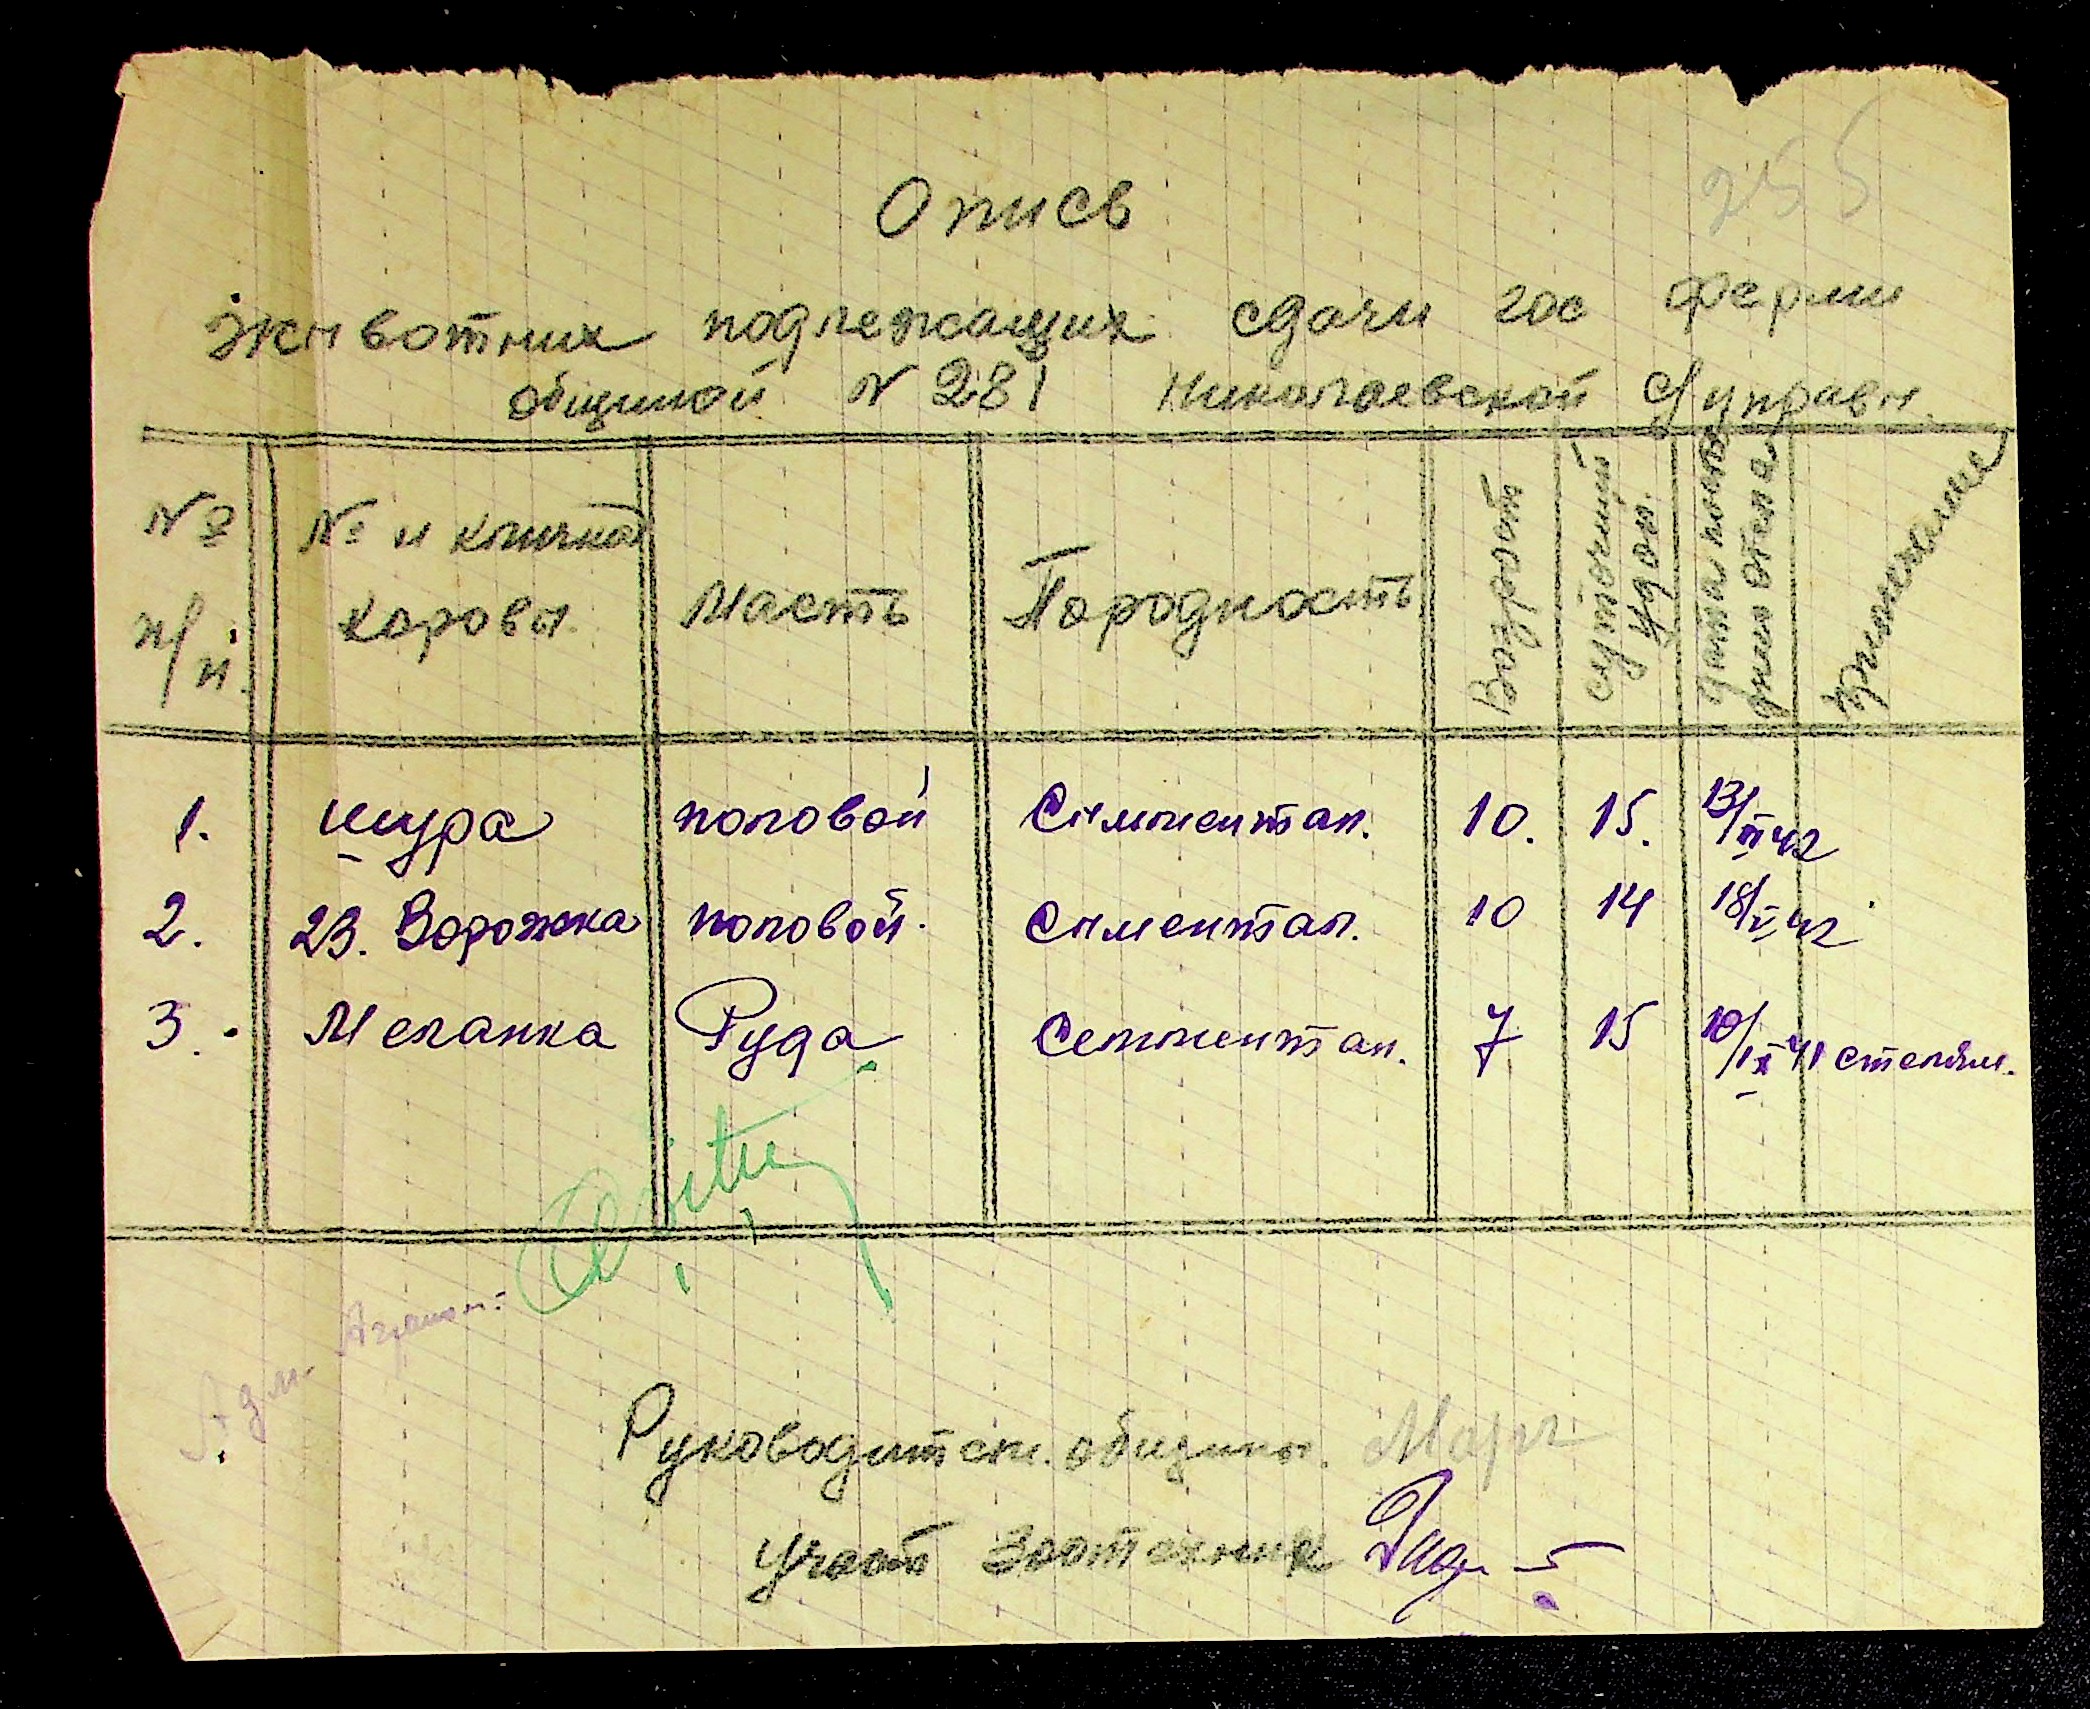 255
Опись
животних подлежащих сдачи гос ферми
общиной № 281 Николаевской С/управы.
№ п/п. № и кличка коровы. Масть Породность Возрост суточный удой. дата последн отела Примечание
1. Шура половой Симментал. 10. 15. 13/II 42
2. 23. Ворожка половой. Симентал. 10 14 18/V 42
3. Меланка Руда Семментал. 7 15 10/IX 41 стельн.
Адм. Агроном:
Руководител. общины.
Участ Зоотехник